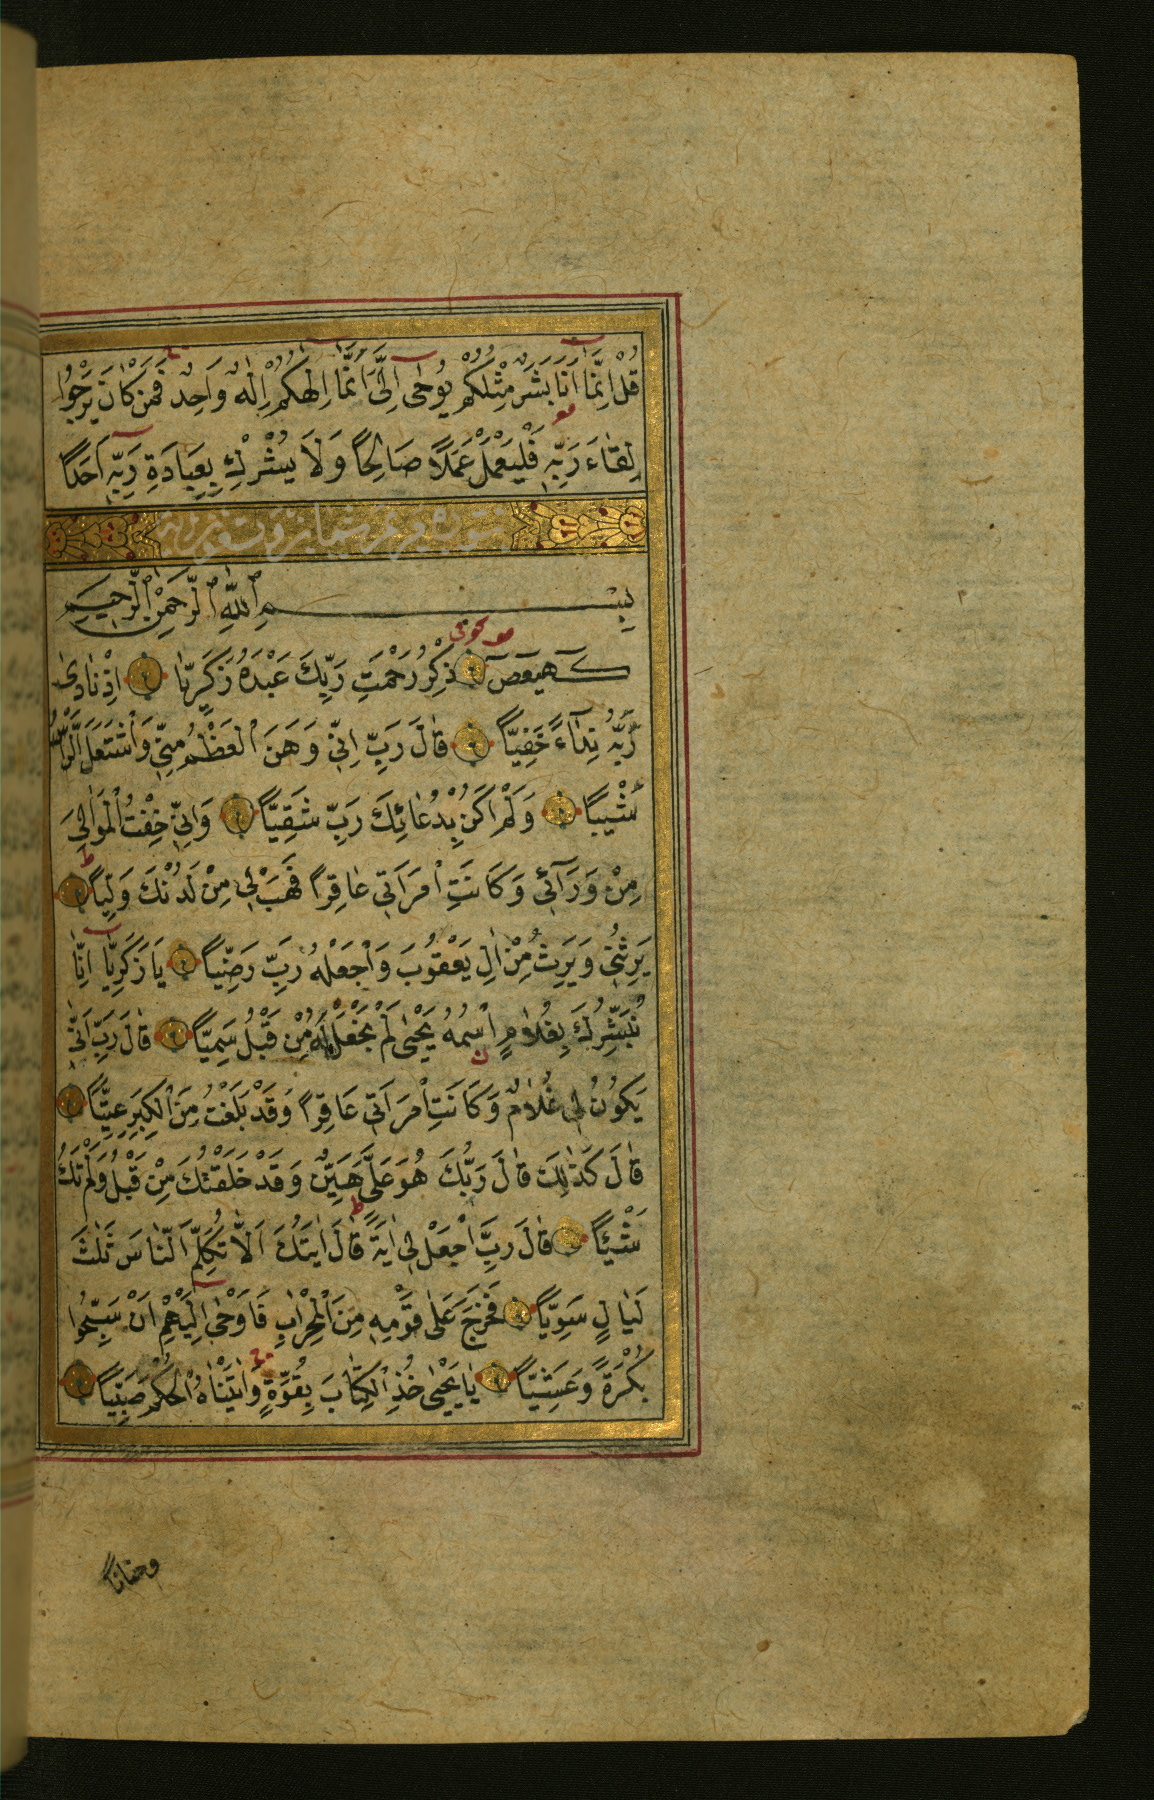 قُلْ اِنَّمَا اَنَا بَشَرٌ مِثْلُكُمْ يُوحٰى اِلَىَّ اَنَّمَا اِلٰهُكُمْ اِلٰهٌ وَاحِدٌ فَمَنْ كَانَ يَرْجُوا
لِقَاءَ رَبِّهٖ فَلْيَعْمَلْ عَمَلًا صَالِحًا وَلَا يُشْرِكْ بِعِبَادَةِ رَبِّهٖ اَحَدًا
بِسْمِ اللّٰهِ الرَّحْمٰنِ الرَّحِيمِ
كٓهيعٓصٓ ذِكْرُ رَحْمَتِ رَبِّكَ عَبْدَهُ زَكَرِيَّا اِذْ نَادٰى
رَبَّهُ نِدَآءً خَفِيًّا قَالَ رَبِّ اِنّٖى وَهَنَ الْعَظْمُ مِنّٖى وَاشْتَعَلَ الرَّاْسُ
شَيْبًا وَلَمْ اَكُنْ بِدُعَائِكَ رَبِّ شَقِيًّا وَاِنّٖى خِفْتُ الْمَوَالِىَ
مِنْ وَرَآئٖى وَكَانَتِ امْرَاَتٖى عَاقِرًا فَهَبْ لٖى مِنْ لَدُنْكَ وَلِيًّا
يَرِثُنٖى وَيَرِثُ مِنْ اٰلِ يَعْقُوبَ وَاجْعَلْهُ رَبِّ رَضِيًّا يَا زَكَرِيَّا اِنَّا
نُبَشِّرُكَ بِغُلَامٍ اسْمُهُ يَحْيٰى لَمْ نَجْعَلْ لَهُ مِنْ قَبْلُ سَمِيًّا قَالَ رَبِّ اَنّٰى
يَكُونُ لٖى غُلَامٌ وَكَانَتِ امْرَاَتٖى عَاقِرًا وَقَدْ بَلَغْتُ مِنَ الْكِبَرِ عِتِيًّا
قَالَ كَذٰلِكَ قَالَ رَبُّكَ هُوَ عَلَىَّ هَيِّنٌ وَقَدْ خَلَقْتُكَ مِنْ قَبْلُ وَلَمْ تَكُ
شَيْئًا قَالَ رَبِّ اجْعَلْ لٖى اٰيَةً قَالَ اٰيَتُكَ اَلَّا تُكَلِّمَ النَّاسَ ثَلٰثَ
لَيَالٍ سَوِيًّا فَخَرَجَ عَلٰى قَوْمِهٖ مِنَ الْمِحْرَابِ فَاَوْحٰى اِلَيْهِمْ اَنْ سَبِّحُوا
بُكْرَةً وَعَشِيًّا يَا يَحْيٰى خُذِ الْكِتَابَ بِقُوَّةٍ وَاٰتَيْنَاهُ الْحُكْمَ صَبِيًّا
وحنانًا